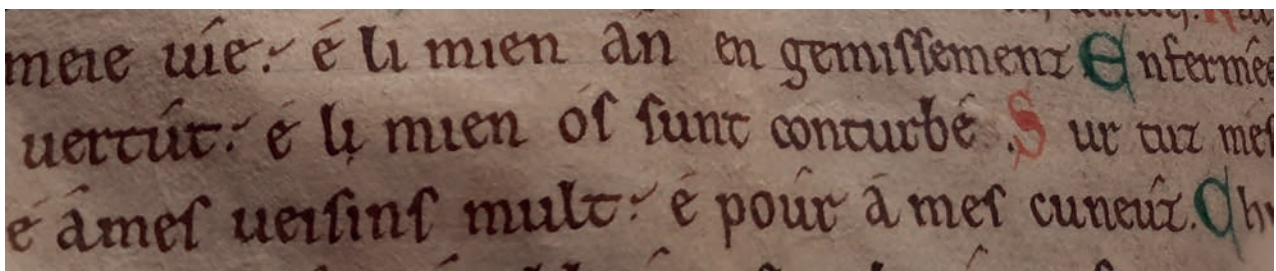 meie uíe: é li mien án en gemissement Enfermée
uertút: é li mien ós sunt conturbé. Sur tuz mes
é ámes ueisins mult: é póur á mes cuneúz. Ch